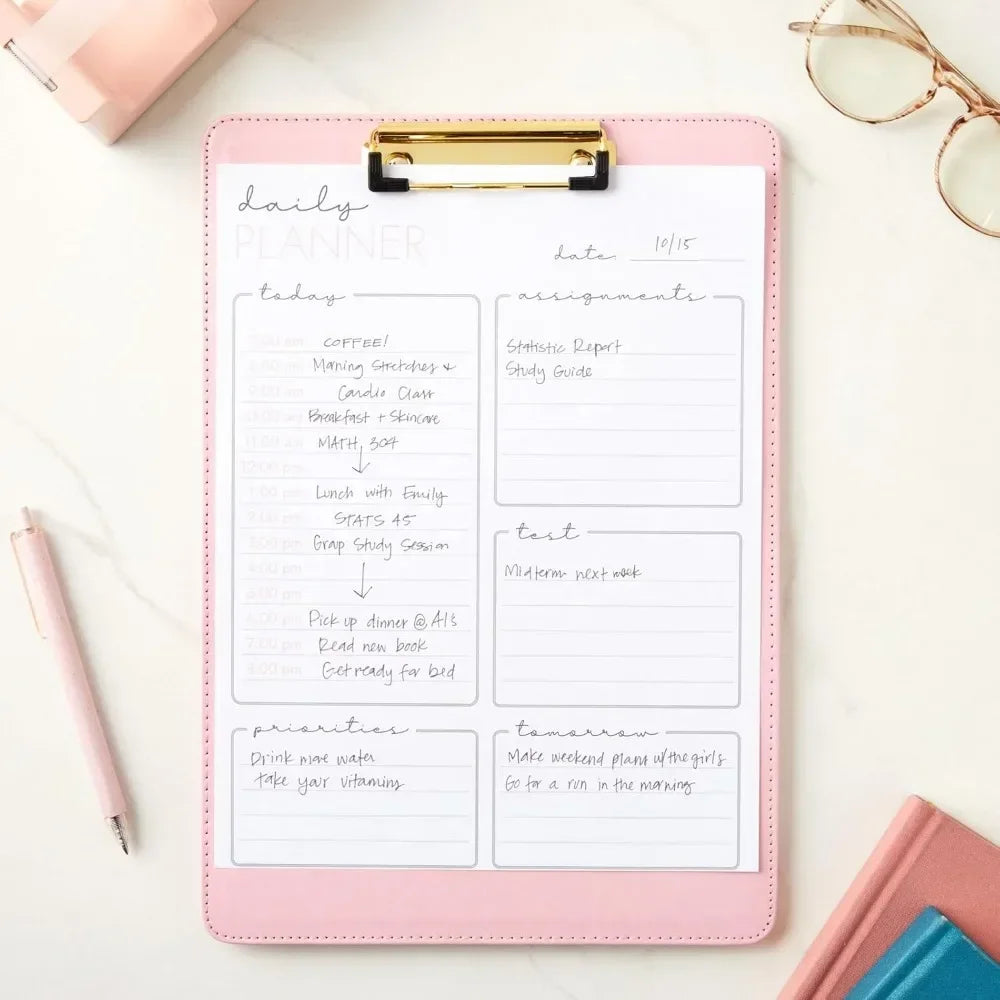 daily
PLANNER
date: 10/15
today
7:00 am COFFEE!
8:00 am Morning Stretches +
9:00 am Cardio Class
10:00 am Breakfast + Skincare
11:00 am MATH 304
12:00 pm ↓
1:00 pm Lunch with Emily
2:00 pm STATS 45
3:00 pm Group Study Session
4:00 pm ↓
5:00 pm
6:00 pm Pick up dinner @ Al's
7:00 pm Read new book
8:00 pm Get ready for bed
assignments
Statistic Report
Study Guide
test
Midterm next week
priorities
Drink more water
take your vitamins
tomorrow
Make weekend plans w/ the girls
Go for a run in the morning